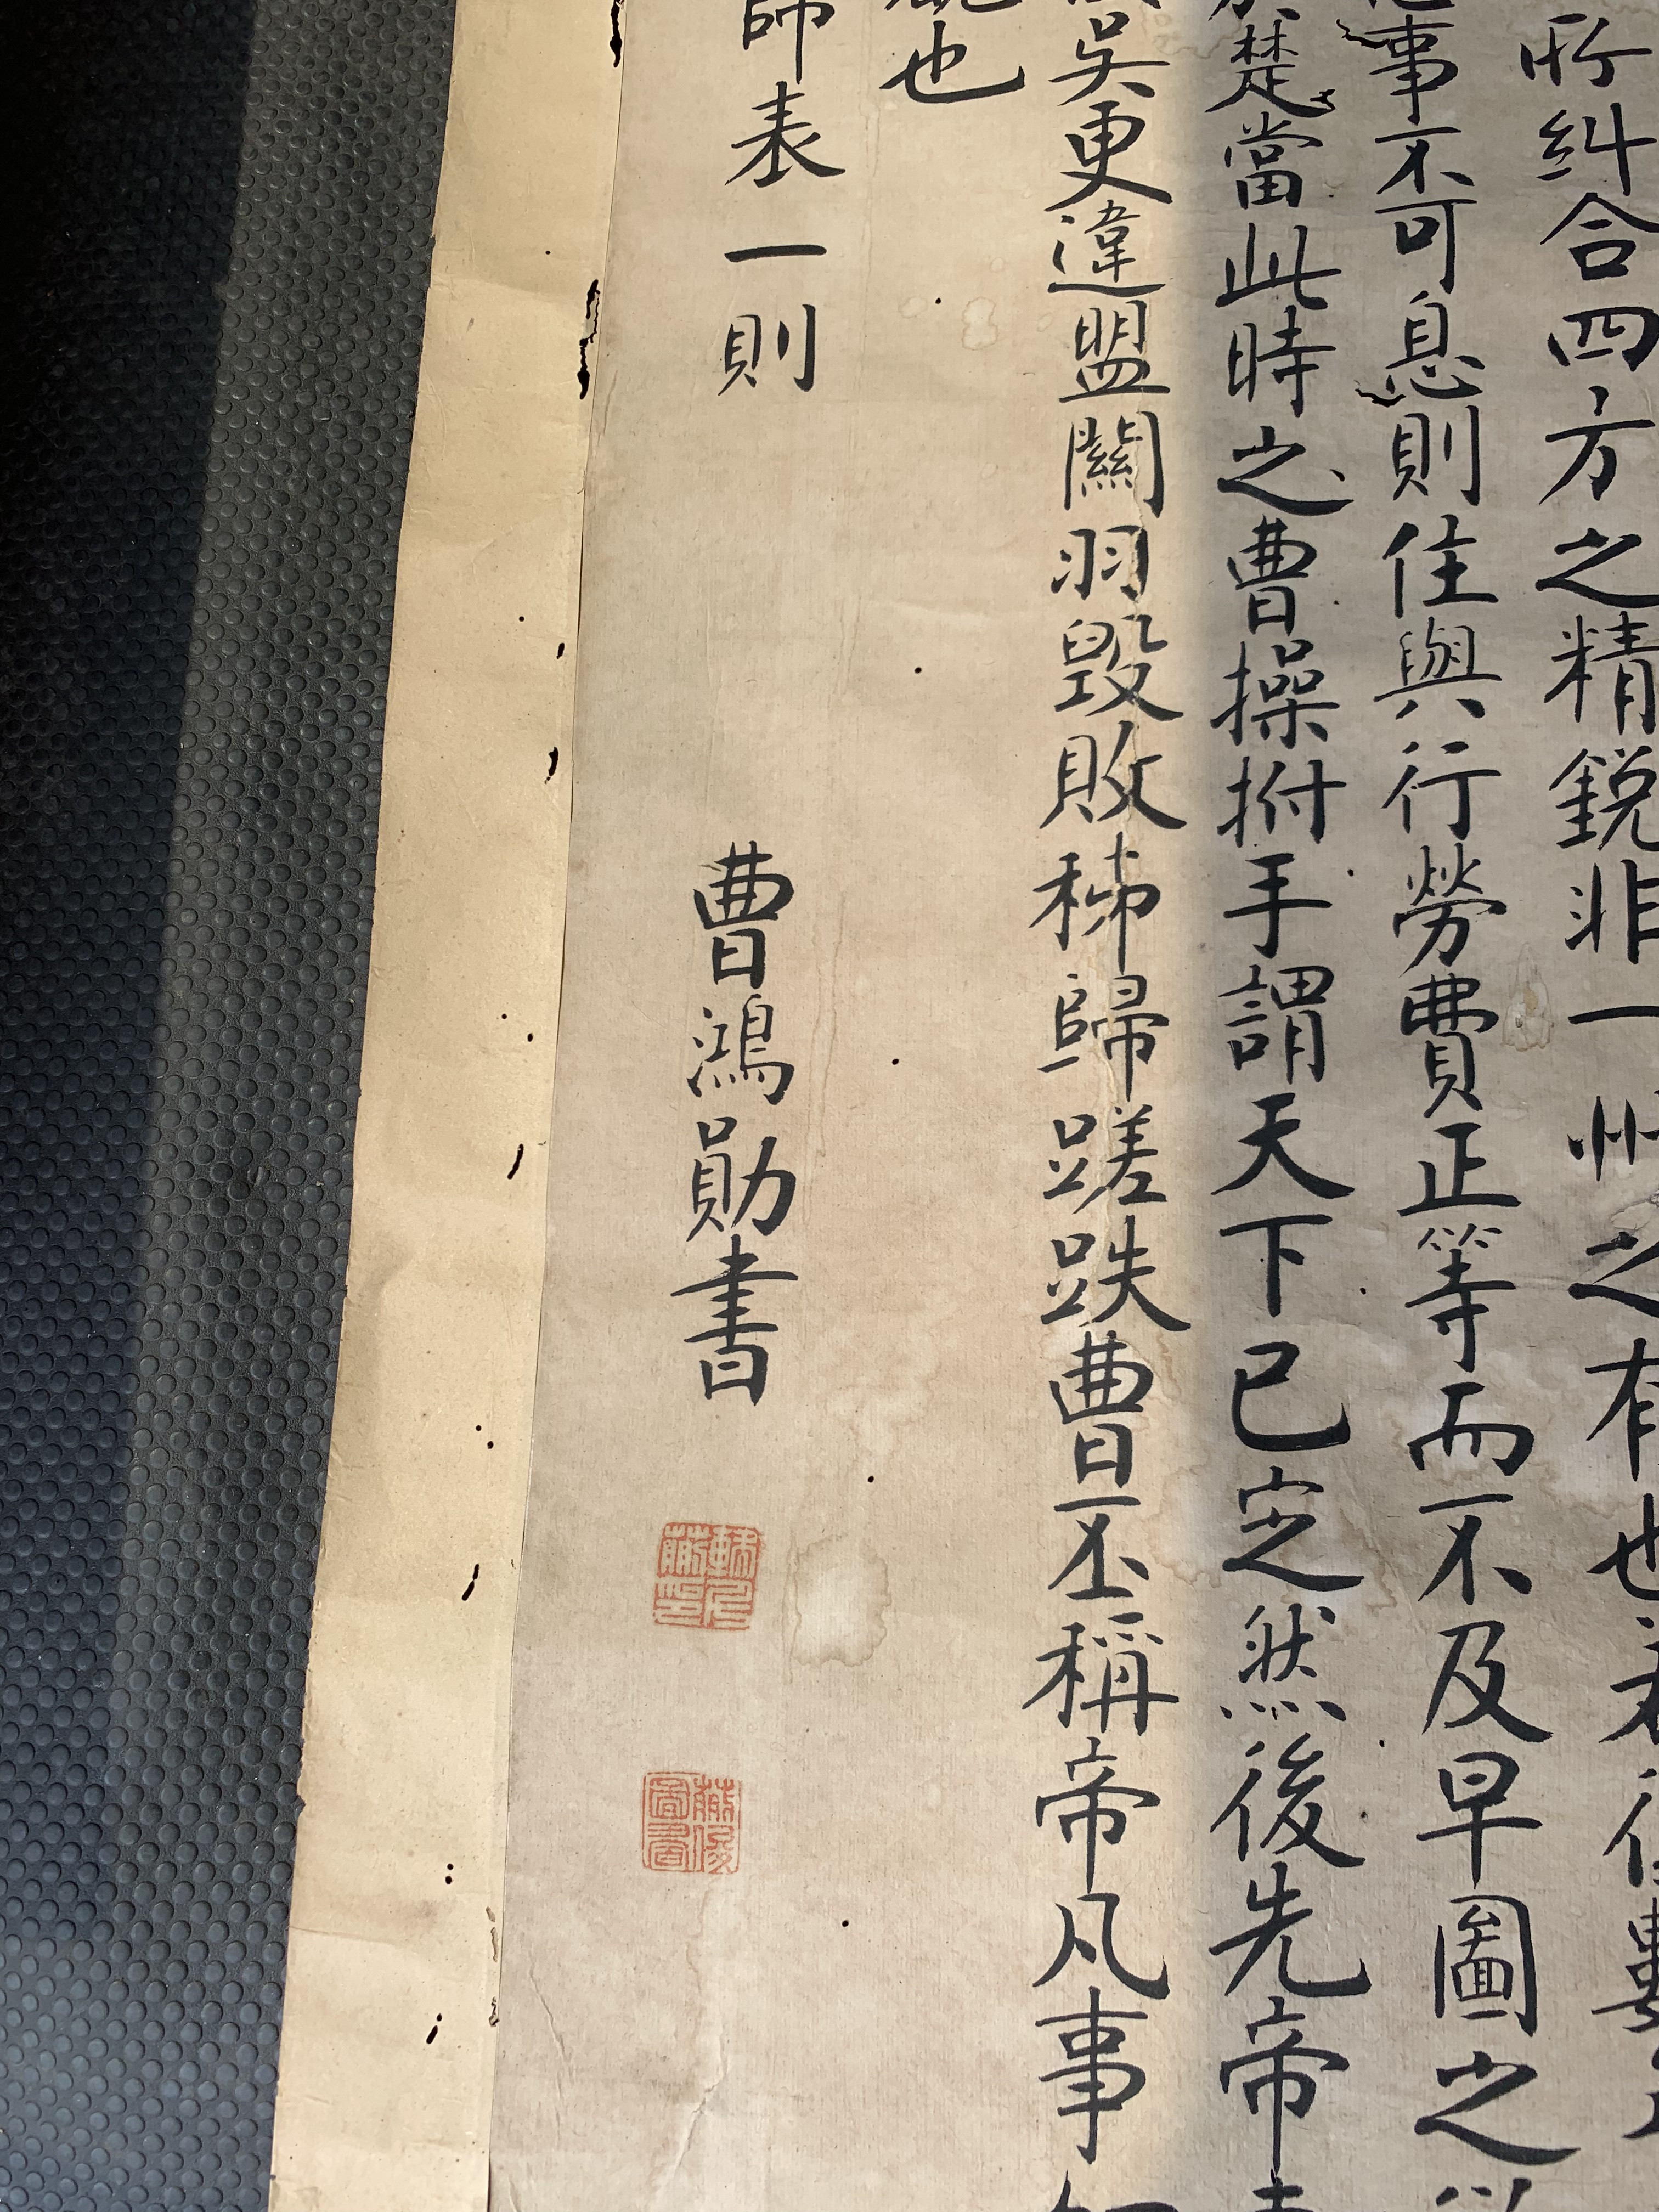 所糾合四方之精銳非一州之有也若
事不可息則住與行勞費正等而不及早圖之
楚當此時之曹操拊手謂天下已定然後先帝
吳更違盟關羽毀敗秭歸蹉跌曹丕稱帝凡事
也
師表一則
曹鴻勛書